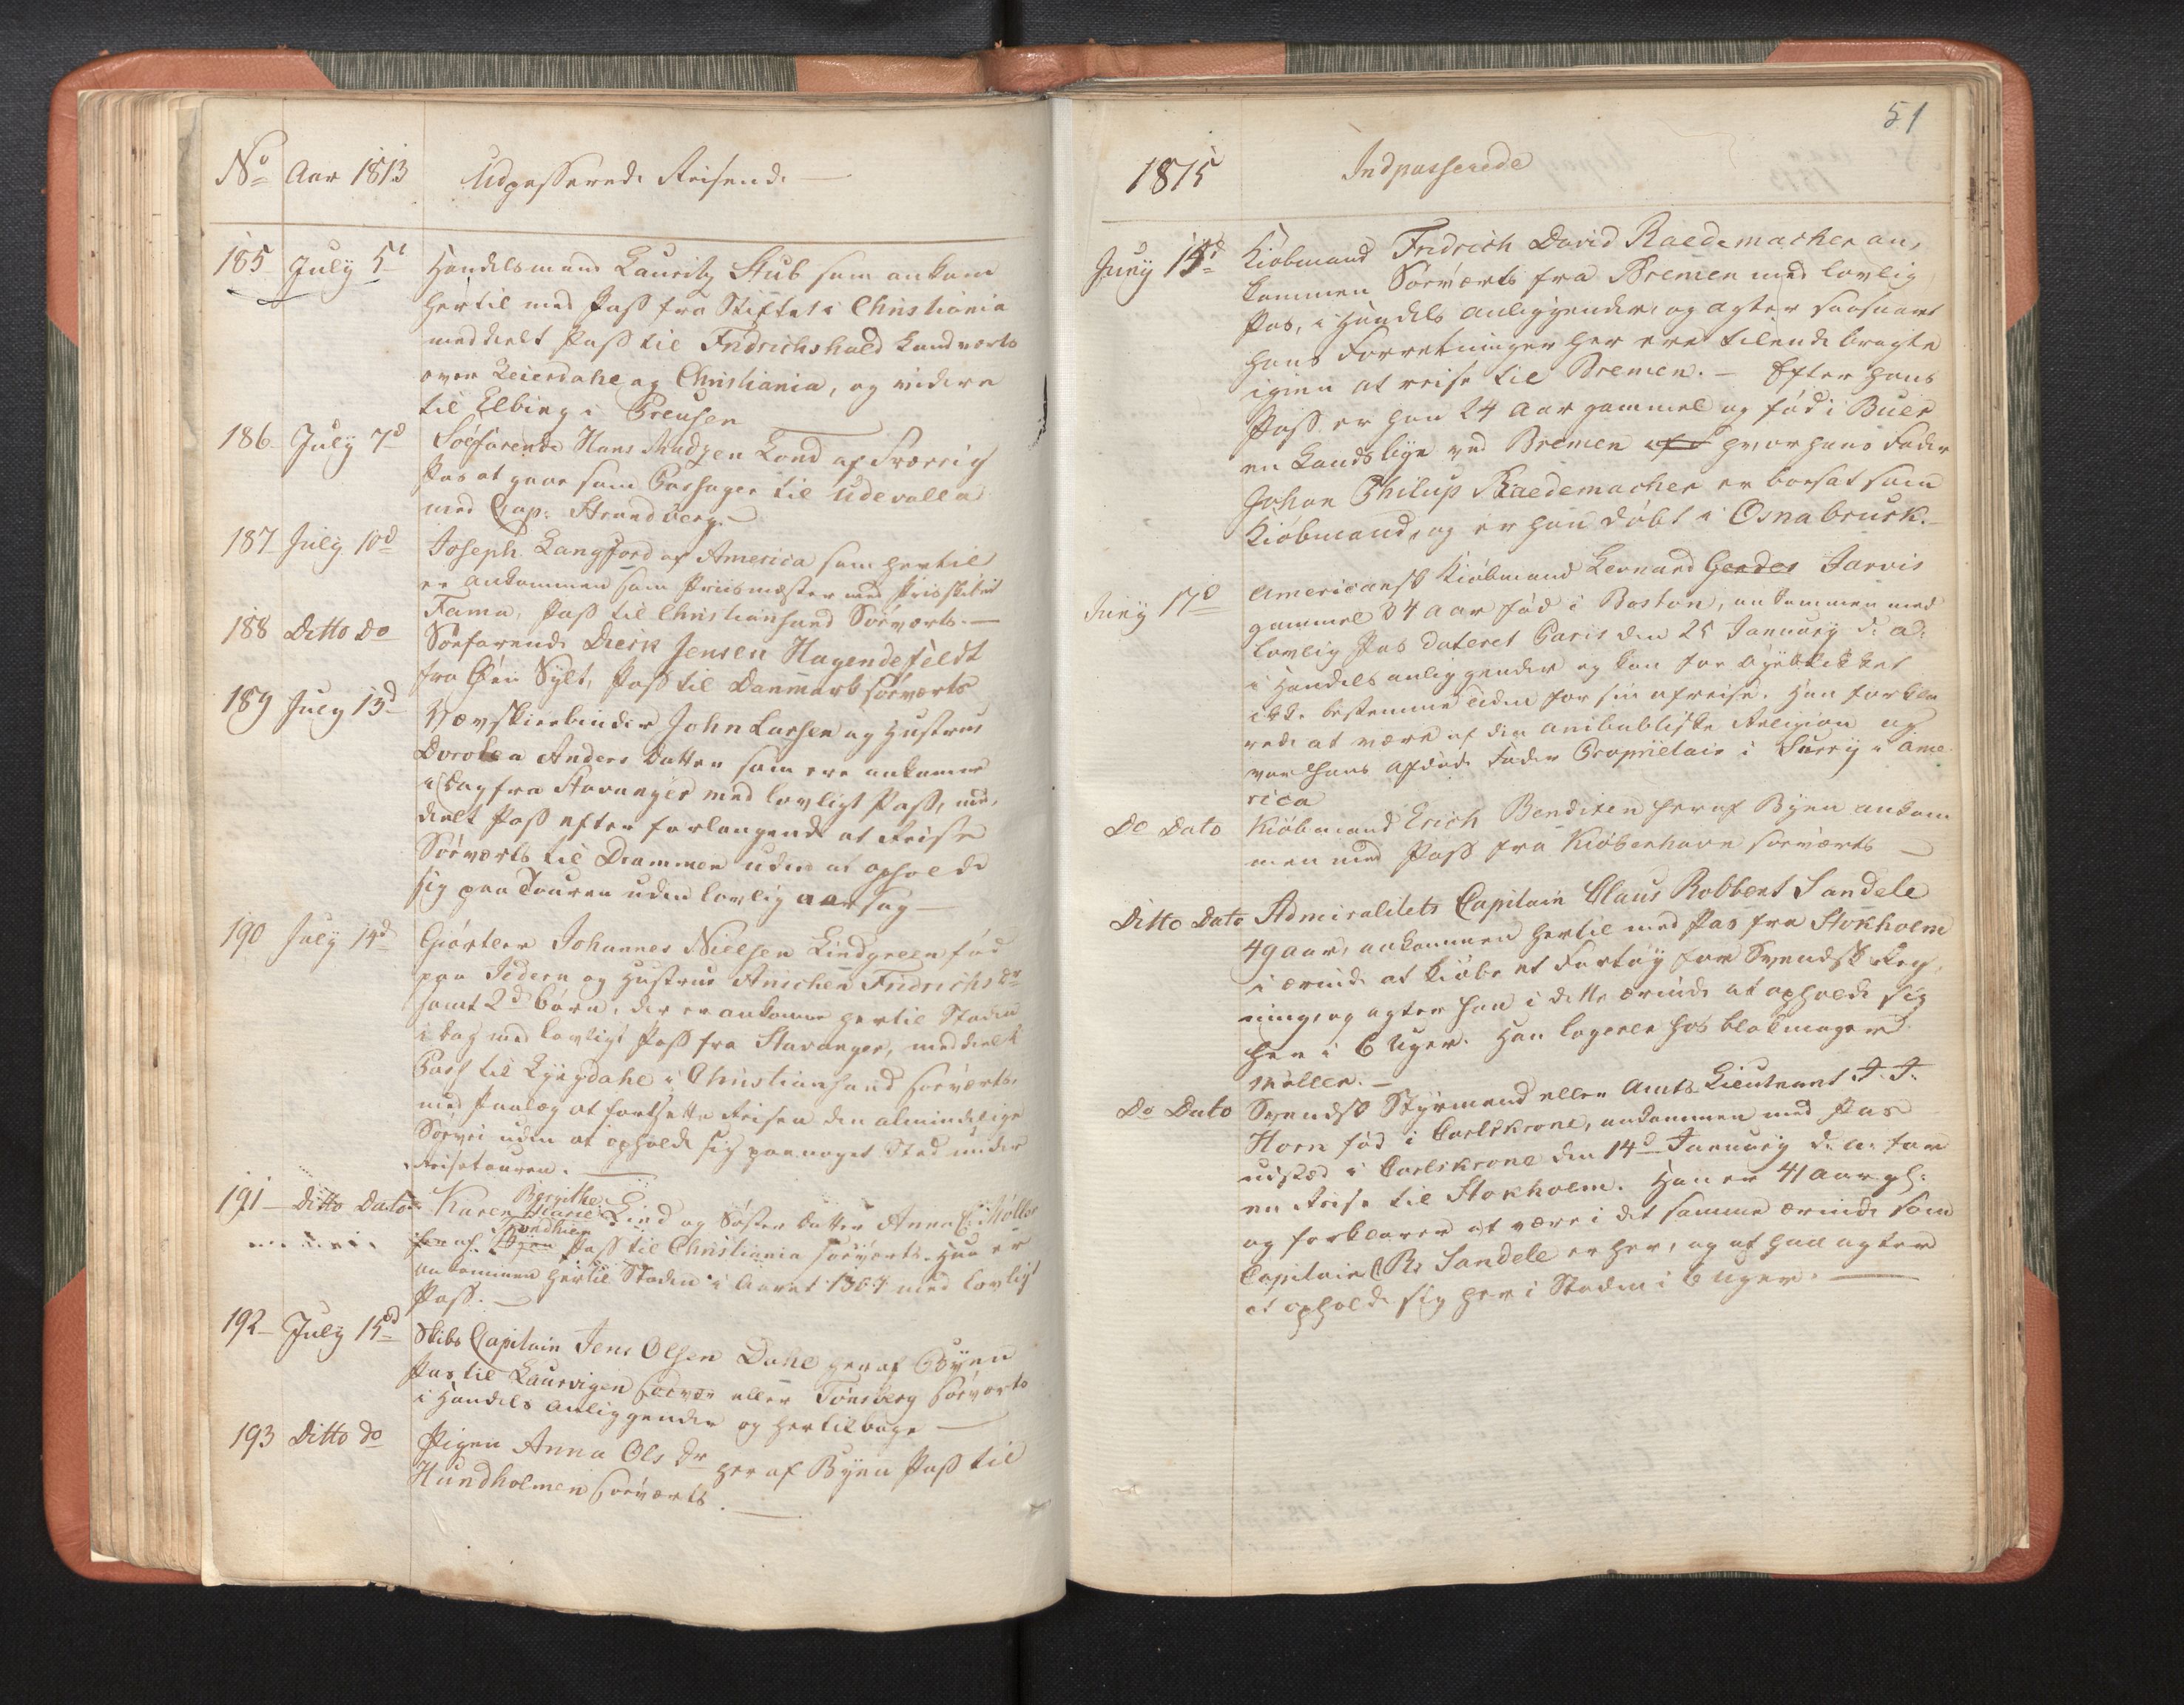 No Aar 1813 Udpasserede Reisende
185 July 5t Handelsmand Lauritz Stub som ankom
hertil med Pass fra Stiftet i Christiania
meddelt Pass til Fridrichshald Landværts
over Leierdahl og Christiania, og videre
til Elbing i Preusen
186 July 7d Søefarende Hans Madzen Lond af Sverrig
Pas at gaae som Passager til Udevalla
med Cap: Strandberg.
187 July 10d Joseph Langford af America som hertil
er ankommen som Priismester med Prisskibet
Fama, Pass til Christiansand Søeværts.
188 Ditto Do Søefarende Dierk Jensen Hagendefeldt
fra Øen Sylt, Pass til Danmark søeværts
189 July 13d Vævskeebinder John Larsen og Hustrue
Dorothea Anders Datter som ere ankomne
i Dag fra Stavanger med lovligt Pass, med,
deelt Pass efter forlangende at Reise
Søeværts til Drammen uden at opholde
sig paa Touren uden lovlig aarsag
190 July 14d Giørtler Johannes Nielsen Lindgreen fød
paa Jedern og Hustrue Anichen Fridrichs Dr
samt 2de børn, der er ankomne hertil Staden
i dag med lovligt Pass fra Stavanger, meddeelt
Pass til Lyngdahl i Christiansand søeværts,
med Paalæg at fortsette Reisen den almindelige
Søevei uden at opholde sig paa noget Sted under
Reisetouren.
191 Ditto Dato Karen Marie Lind og Søster datter Anna C: Møller
Bergithe
her af Byen Pass til Christiania søeværts. Hun er
Trondhiem
ankommen hertil Staden i Aaret 1804 med lovligt
Pass.
192 July 15d Skibs Capitain Jens Olsen Dahl her af Byen
Pas til Laurvigen eller Tønsberg søeværts
i Handels Anliggender og her tilbage
193 Ditto do Pigen Anna Ols Dr her af Byen Pass til
Hundholmen søeværts.
51
1815 Indpasserede
Juny 15d Kiøbmand Fridrich David Raedemacher an,
kommen Søeværts fra Bremen med lovlig
Pas, i Handels Anliggender og agter saasnart
hans Forretninger her ere tilende bragte
igien at reise til Bremen. – Efter hans
Pass er han 24 Aar gammel og fød i Buer
en Landsbye ved Bremen af hvor hans Fader
Johan Philip Raedemacher er bosat som
Kiøbmand, og er han døbt i Osnabruck.
Juny 17d Americansk Kiøbmand Leonard Gerdes Jarvis
gammel 34 Aar fød i Boston, ankommen med
lovlig Pas dateret Paris den 25 January d: a:
i Handels anliggender og kan for Øyeblikket
ikke bestemme tiden for sin afreise. Han forkla
rede at være af den Religion og
var hans afdøde Fader Proprietair i Surry i Ame
rica
Do Dato Kiøbmand Erich Bendixen her af Byen ankom
men med Pass fra Kiøbenhavn søeværts
Ditto Dato Admiralitets Capitain Claus Robbert Sandele
49 aar, ankommen hertil med Pas fra Stokholm
i ærinde at kiøbe et Fartøy for Svensk Reg,
ning, og agter han i dette ærinde at opholde sig
her i 6 Uger. Han logerer hos blokmager
Møller. –
Do Dato Svensk Styrmand eller Amts Lieutnant J. J.
Horn fød i Carlskrone, ankommen med Pas
udstæd i Carlskrone den 14d January d. a. for
en Reise til Stokholm. Han er 41 Aar gl:
og forklarer at være i det samme ærinde som
Capitain C Rt Sandele er her, og at han agter
at opholde sig her i Staden i 6 Uger.